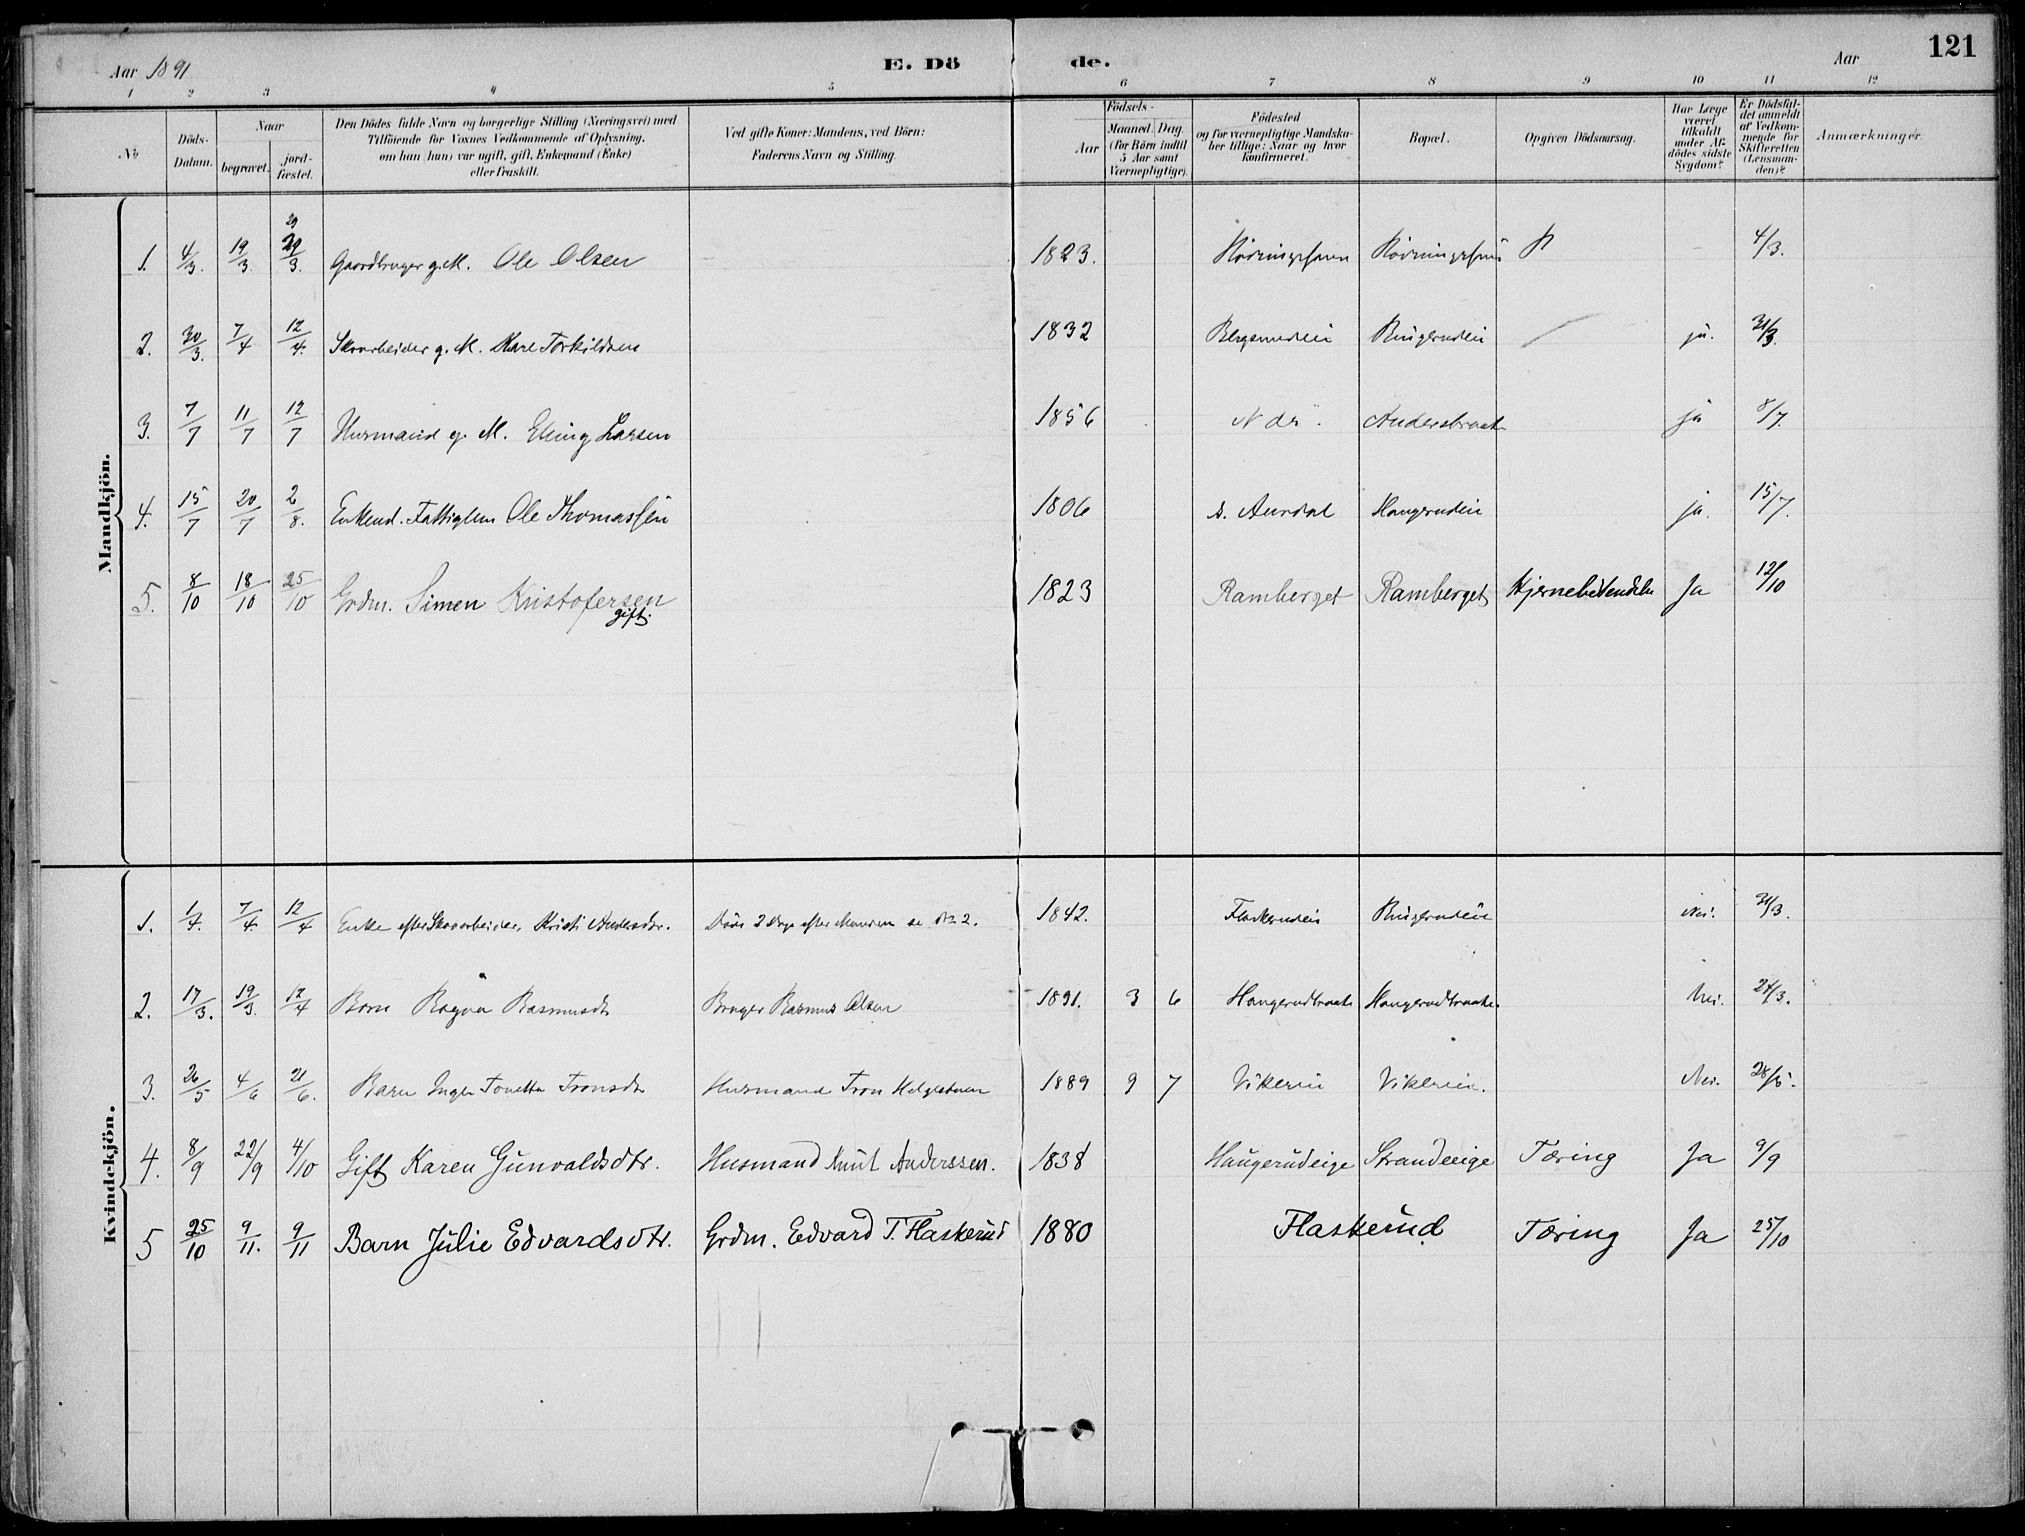 121
Aar 1891 E. Dö de. Aar
1 2 3 4 5 6 7 8 9 10 11 12
No
Döds-Datum.
Naar
begravet.
jord-fæstet.
Den Dödes fulde Navn og borgerlige Stilling (Næringsvei) med
Tilföiende for Voxnes Vedkommende af Oplysning,
om han (hun) var ugift, gift, Enkemand (Enke)
eller fraskilt.
Ved gifte Koner: Mandens, ved Börn:
Faderens Navn og Stilling.
Födsels-
Aar
Maaned. Dag.
(for Börn indtil
5 Aar samt
Værnepligtige).
Födested
og for værnepligtige Mandska-
ber tillige: Naar og hvor
konfirmeret.
Bopæl.
Opgiven Dödsaarsag.
Har Læge
været
tilkaldt
under Af-
dödes sidste
Sygdom?
Er Dödsfal-
det anmeldt
af Vedkom-
mende for
Skifteretten
(Lensman-
den)?
Anmærkninger.
Mandkjön.
1. 4/3. 19/3. 29 29/3. Gaardbruger g. M. Ole Olsen 1823. 4/3.
2. 30/3. 7/4 12/4. Skovarbeider g. M. Torkildsen 1832 ja. 31/3.
3. 7/7 11/7 12/7 Husmand g. M. Elling Larsen 1856 Andersbraate ja 8/7.
4. 15/7 20/7 2/8. Enkemd. Fattiglem Ole Thomassen 1806 S. Aurdal Haugerudeie ja. 15/7.
5. 8/10 18/10 25/10 Grdm. Simen Kristofersen 1823 Ramberget Ramberget Hjernebetændelse Ja 12/10
gift.
Kvindekjön.
1. 1/4. 7/4. 12/4 Enke efter Skovarbeider, Kristi Andersdtr. Døde 2 Dage efter Manden se No 2. 1842. Flaskerudeie Nei. 31/3.
2. 17/3. 19/3. 12/4 Barn Ragna Rasmusdtr Bruger Rasmus Olsen 1891. 3 6 Haugerudbraate Haugerudbraate. Nei. 27/3.
3. 26/5 4/6 21/6. Barn Inger Tonetta Tronsdtr Husmand Tron Helgesen 1889 9 7 Vikereie Vikereie. Nei. 28/5.
4. 8/9 22/9 4/10 Gift Karen Gunvaldsdtr. Husmand Knut Anderssen. 1838 Haugerudeige Strandeeige Tæring Ja 9/9
5 25/10 9/11. 9/11 Barn Julie Edvardsdtr. Grdm. Edvard T. Flaskerud 1880 Flaskerud Tæring Ja 25/10